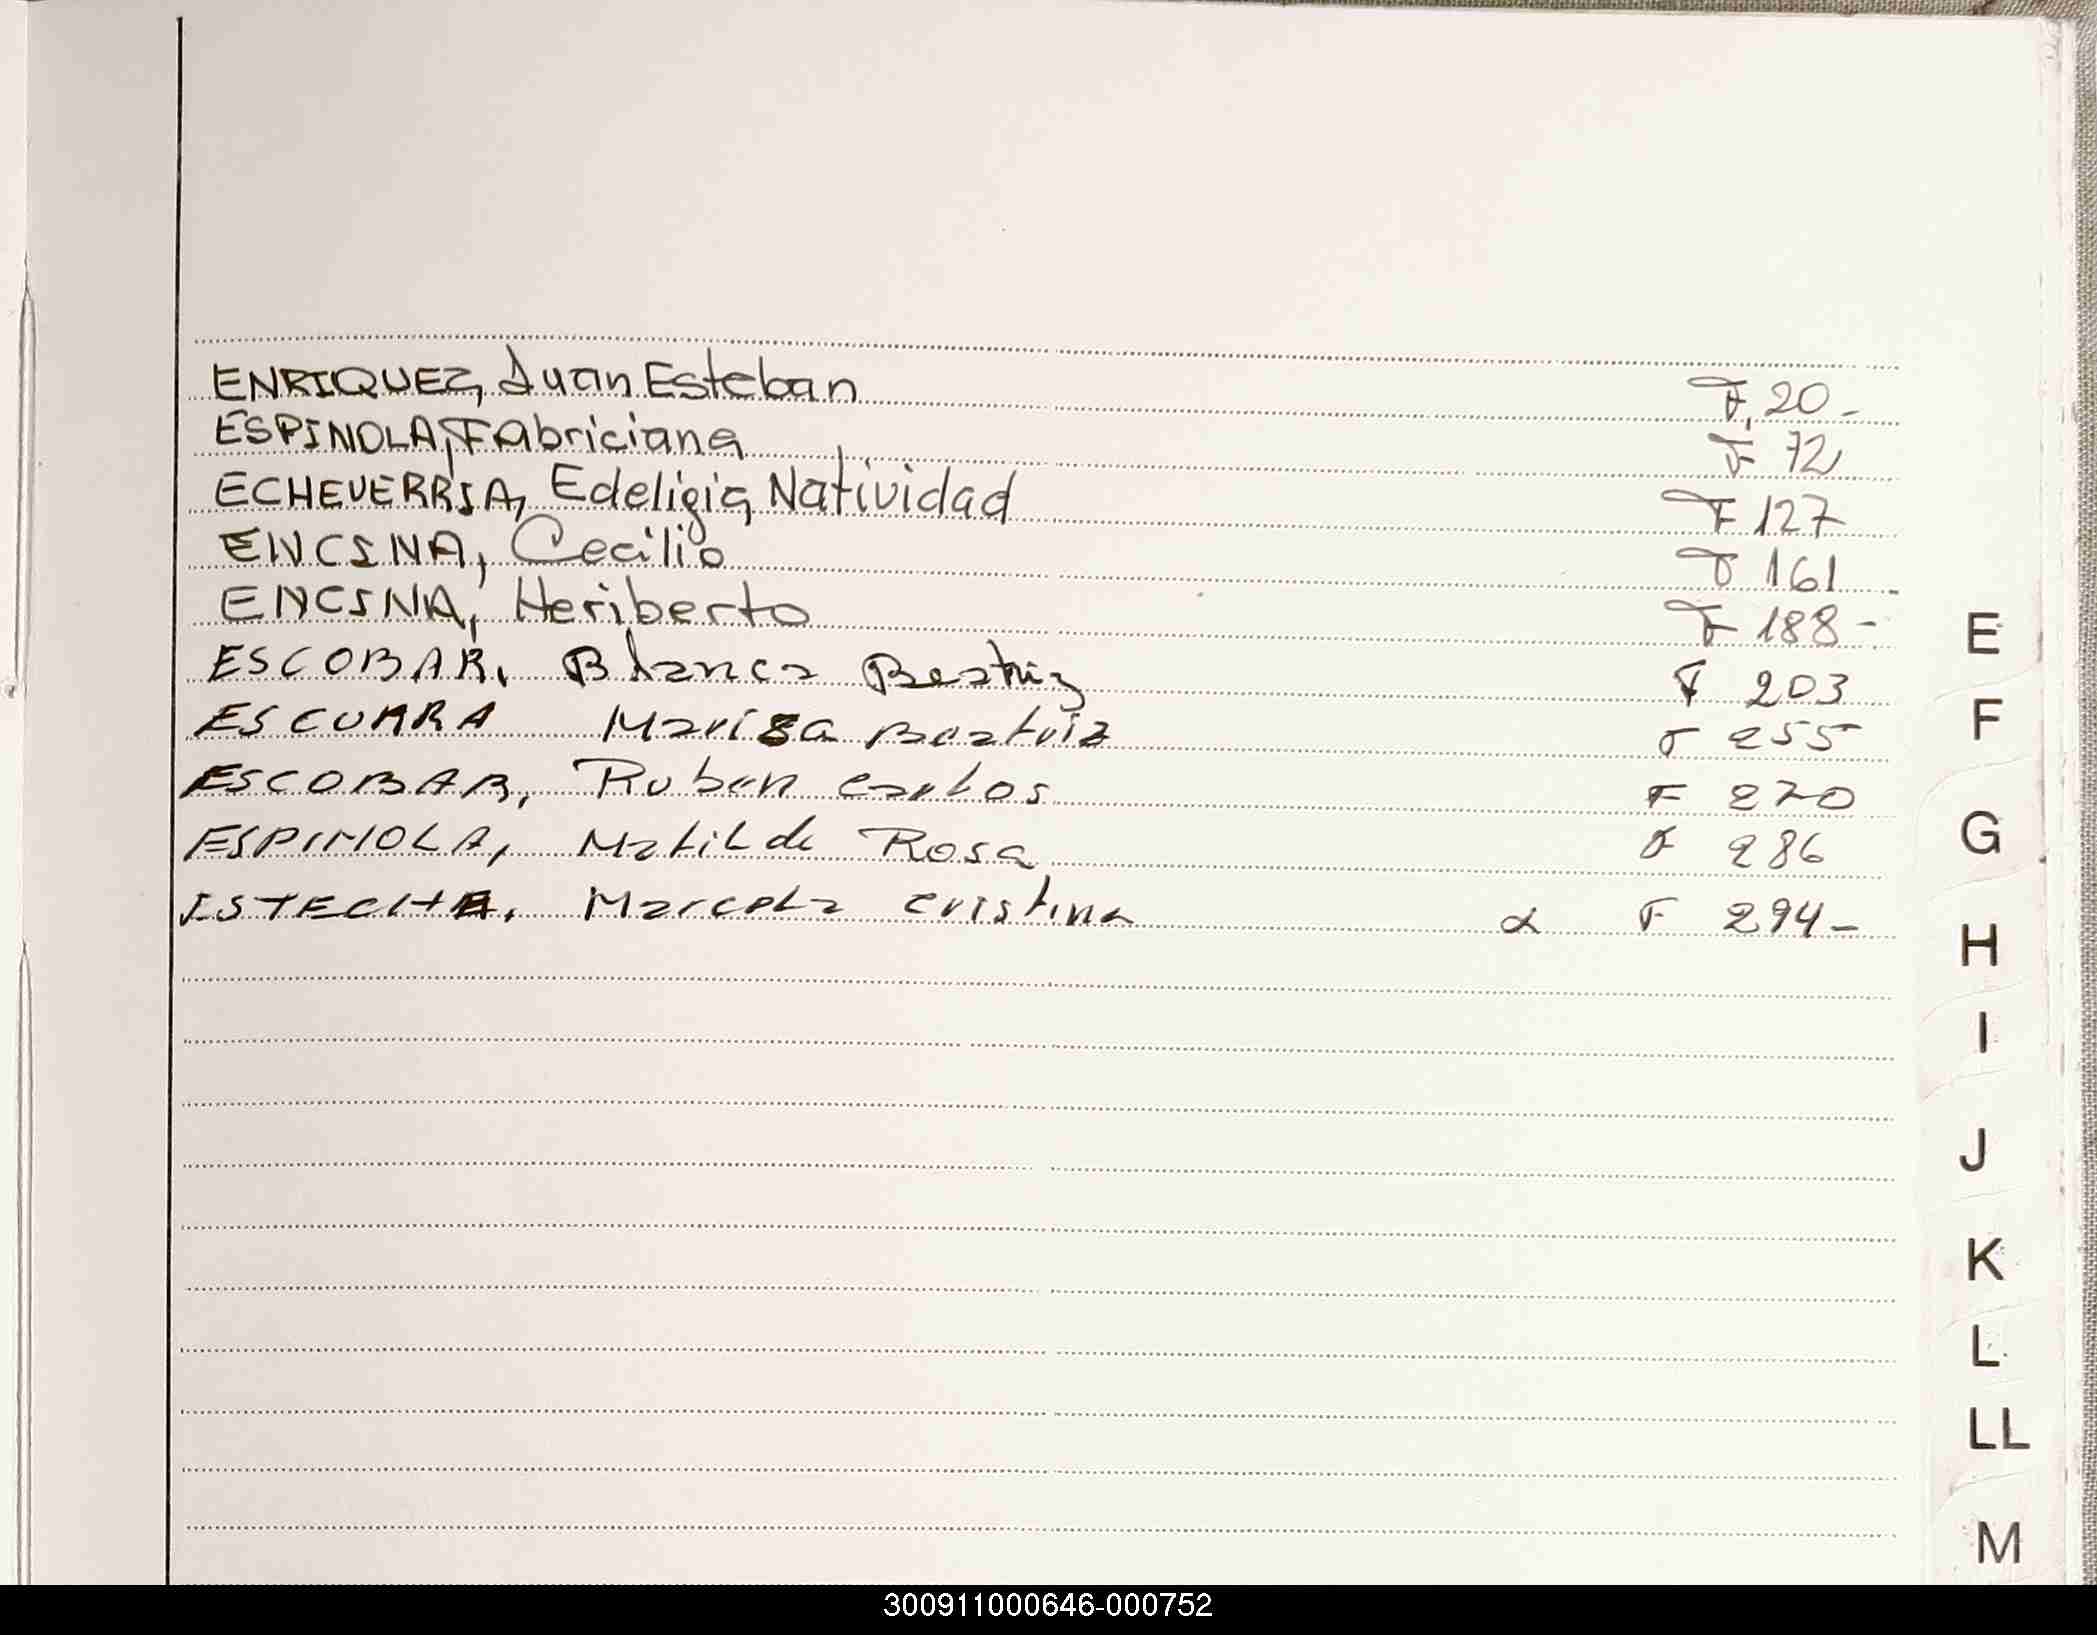 ENRIQUEZ, Juan Esteban F. 20 -
ESPINOLA, Fabriciana F 72
ECHEVERRIA, Edeligia Natividad F 127
ENCINA, Cecilio F 161 -
ENCINA, Heriberto F 188 -
ESCOBAR, Blanca Beatriz F 203
ESCURRA Mariza Beatriz F 255
ESCOBAR, Ruben Carlos F 270
ESPINOLA, Matilde Rosa F 286
ISTECHE, Marcela Cristina F 294 -
E
F
G
H
I
J
K
L
LL
M
300911000646-000752